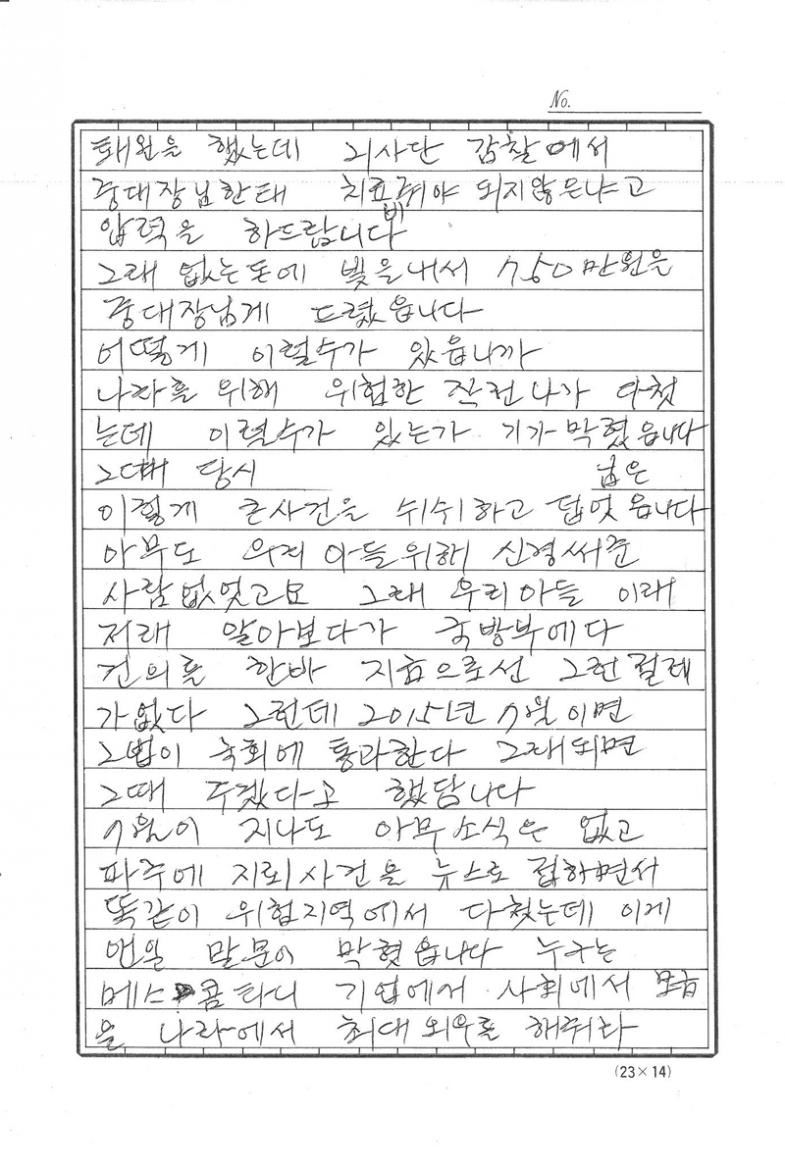 No.
퇴원을 했는데 21사단 감찰에서
중대장님한태 치료비 줘야 되지않은냐고
압력을 하드랍니다
그래 없는돈에 빛을내서 750만원을
중대장님게 드렸읍니다
어떻게 이럴수가 있읍니까
나라를 위해 위험한 작전나가 다첬
는데 이럴수가 있는가 기가막혔읍니다
그때 당시 님은
이렇게 큰사건을 쉬쉬하고 덥엇읍니다
아무도 우리아들위해 신경써준
사람없엇고요 그래 우리아들 이래
저래 알아보다가 국방부에다
건의를 한바 지금으로선 그런 절레
가없다 그런데 2015년 7월이면
그법이 국회에 통과한다 그래되면
그때 주겠다고 했답니다
7월이 지나도 아무소식은 없고
파주에 지뢰사건을 뉴스로 접하면서
똑같이 위험지역에서 다첬는데 이게
앤일 말문이 막혔읍니다 누구는
메스콤타니 기업에서 사회에서 모금
을 나라에서 최대외우를 해줘라
(23×14)